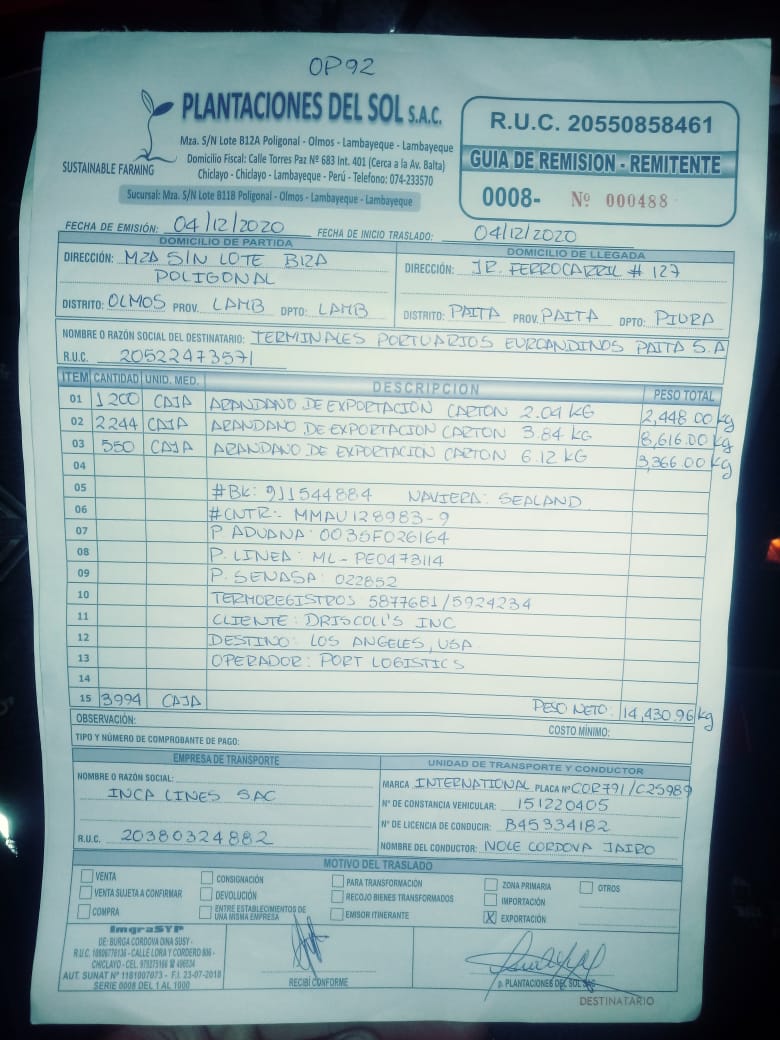 OP92
PLANTACIONES DEL SOL S.A.C.
SUSTAINABLE FARMING
Mza. S/N Lote B12A Poligonal - Olmos - Lambayeque - Lambayeque
Domicilio Fiscal: Calle Torres Paz Nº 683 Int. 401 (Cerca a la Av. Balta)
Chiclayo - Chiclayo - Lambayeque - Perú - Telefono: 074-233570
Sucursal: Mza. S/N Lote B11B Poligonal - Olmos - Lambayeque - Lambayeque
R.U.C. 20550858461
GUIA DE REMISION - REMITENTE
0008- Nº 000488
FECHA DE EMISIÓN: 04/12/2020 FECHA DE INICIO TRASLADO: 04/12/2020
DOMICILIO DE PARTIDA
DIRECCIÓN: MZA S/N LOTE B12A
POLIGONAL
DISTRITO: OLMOS PROV. LAMB DPTO: LAMB
DOMICILIO DE LLEGADA
DIRECCIÓN: JR. FERROCARRIL # 127
DISTRITO: PAITA PROV. PAITA DPTO: PIURA
NOMBRE O RAZÓN SOCIAL DEL DESTINATARIO: TERMINALES PORTUARIOS EUROANDINOS PAITA S.A
R.U.C. 20522473571
ITEM CANTIDAD UNID. MED. DESCRIPCION PESO TOTAL
01 1200 CAJA ARANDANO DE EXPORTACION CARTON 2.04 KG 2,448.00 kg
02 2244 CAJA ARANDANO DE EXPORTACION CARTON 3.84 KG 8,616.00 kg
03 550 CAJA ARANDANO DE EXPORTACION CARTON 6.12 KG 3,366.00 kg
04
05 #BK: 911544884 NAVIERA: SEALAND
06 #CNTR:- MMAU128983-9
07 P ADUANA: 0035F026164
08 P. LINEA: ML-PE0473114
09 P. SENASA: 022852
10 TERMOREGISTROS 5877681/5924234
11 CLIENTE: DRISCOLL'S INC
12 DESTINO: LOS ANGELES, USA
13 OPERADOR: PORT LOGISTICS
14
15 3994 CAJA PESO NETO: 14,430.96 kg
OBSERVACIÓN: COSTO MÍNIMO:
TIPO Y NÚMERO DE COMPROBANTE DE PAGO:
EMPRESA DE TRANSPORTE
NOMBRE O RAZÓN SOCIAL:
INCA LINES SAC
R.U.C. 20380324882
UNIDAD DE TRANSPORTE Y CONDUCTOR
MARCA INTERNATIONAL PLACA Nº COR791/C25989
N° DE CONSTANCIA VEHICULAR: 151220405
N° DE LICENCIA DE CONDUCIR: B45334182
NOMBRE DEL CONDUCTOR: NOLE CORDOVA JAIRO
MOTIVO DEL TRASLADO
VENTA CONSIGNACIÓN PARA TRANSFORMACIÓN ZONA PRIMARIA OTROS
VENTA SUJETA A CONFIRMAR DEVOLUCIÓN RECOJO BIENES TRANSFORMADOS IMPORTACIÓN
COMPRA ENTRE ESTABLECIMIENTOS DE UNA MISMA EMPRESA EMISOR ITINERANTE X EXPORTACIÓN
ImgraSYP
DE: BURGA CORDOVA DINA SUSY -
R.U.C. 10806778136 - CALLE LORA Y CORDERO 806 -
CHICLAYO - CEL. 979275166 ☎ 496534
AUT. SUNAT Nº 1181007073 - F.I. 23-07-2018
SERIE 0008 DEL 1 AL 1000
RECIBÍ CONFORME
p. PLANTACIONES DEL SOL SAC
DESTINATARIO